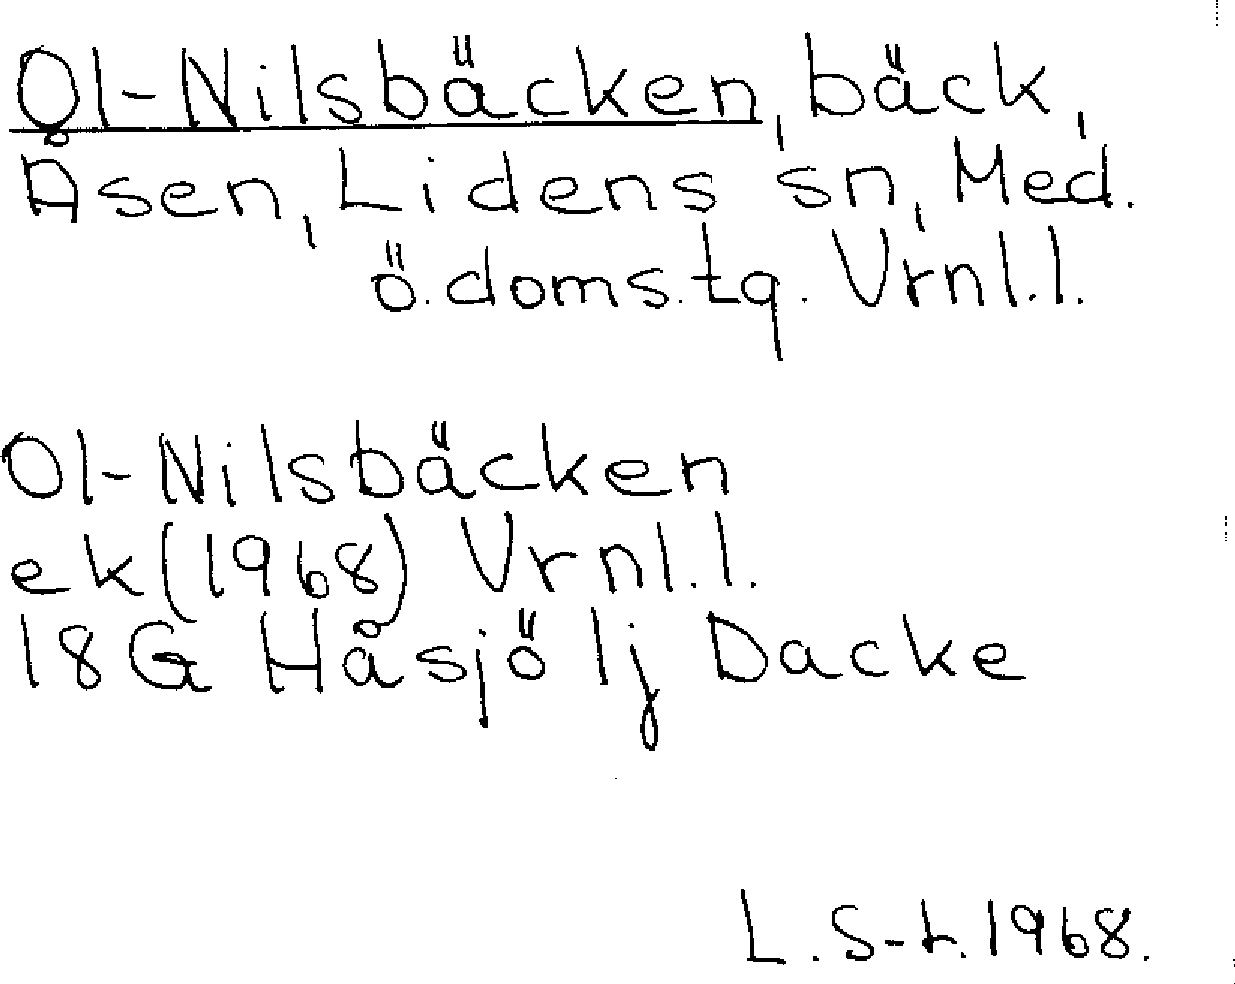 Ol-Nilsbäcken, bäck,
Åsen, Lidens sn, Med.
ö. doms.tg. Vrnl.l.
Ol-Nilsbäcken
ek (1968) Vrnl.l.
18G Håsjö 1j Dacke
L. S-t. 1968.